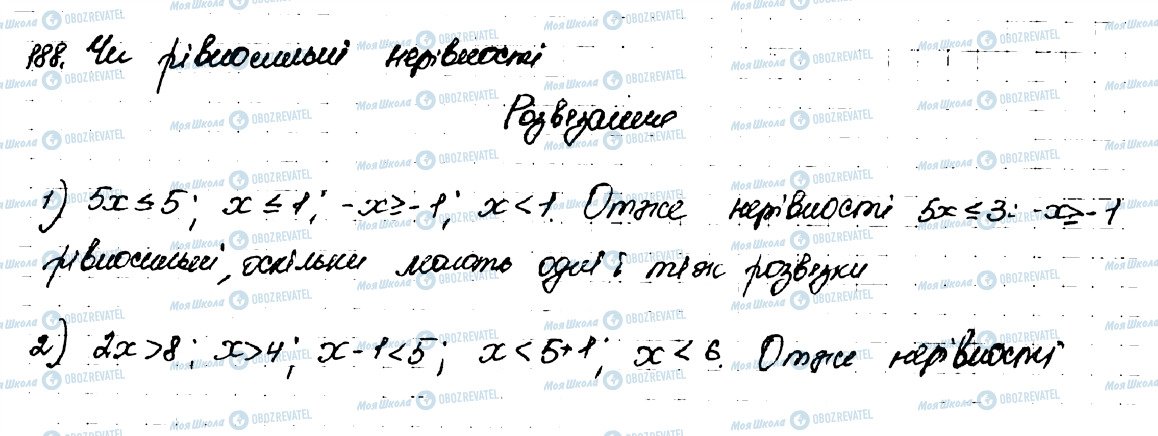 188. Чи рівносильні нерівності
Розвезання
1) 5x ≤ 5; x ≤ 1; -x ≥ -1; x < 1. Отже нерівності 5x ≤ 3: -x ≥ -1
рівносильні, оскільки мають одні і тіж розвезки
2) 2x > 8; x > 4; x - 1 < 5; x < 5 + 1; x < 6. Отже нерівності